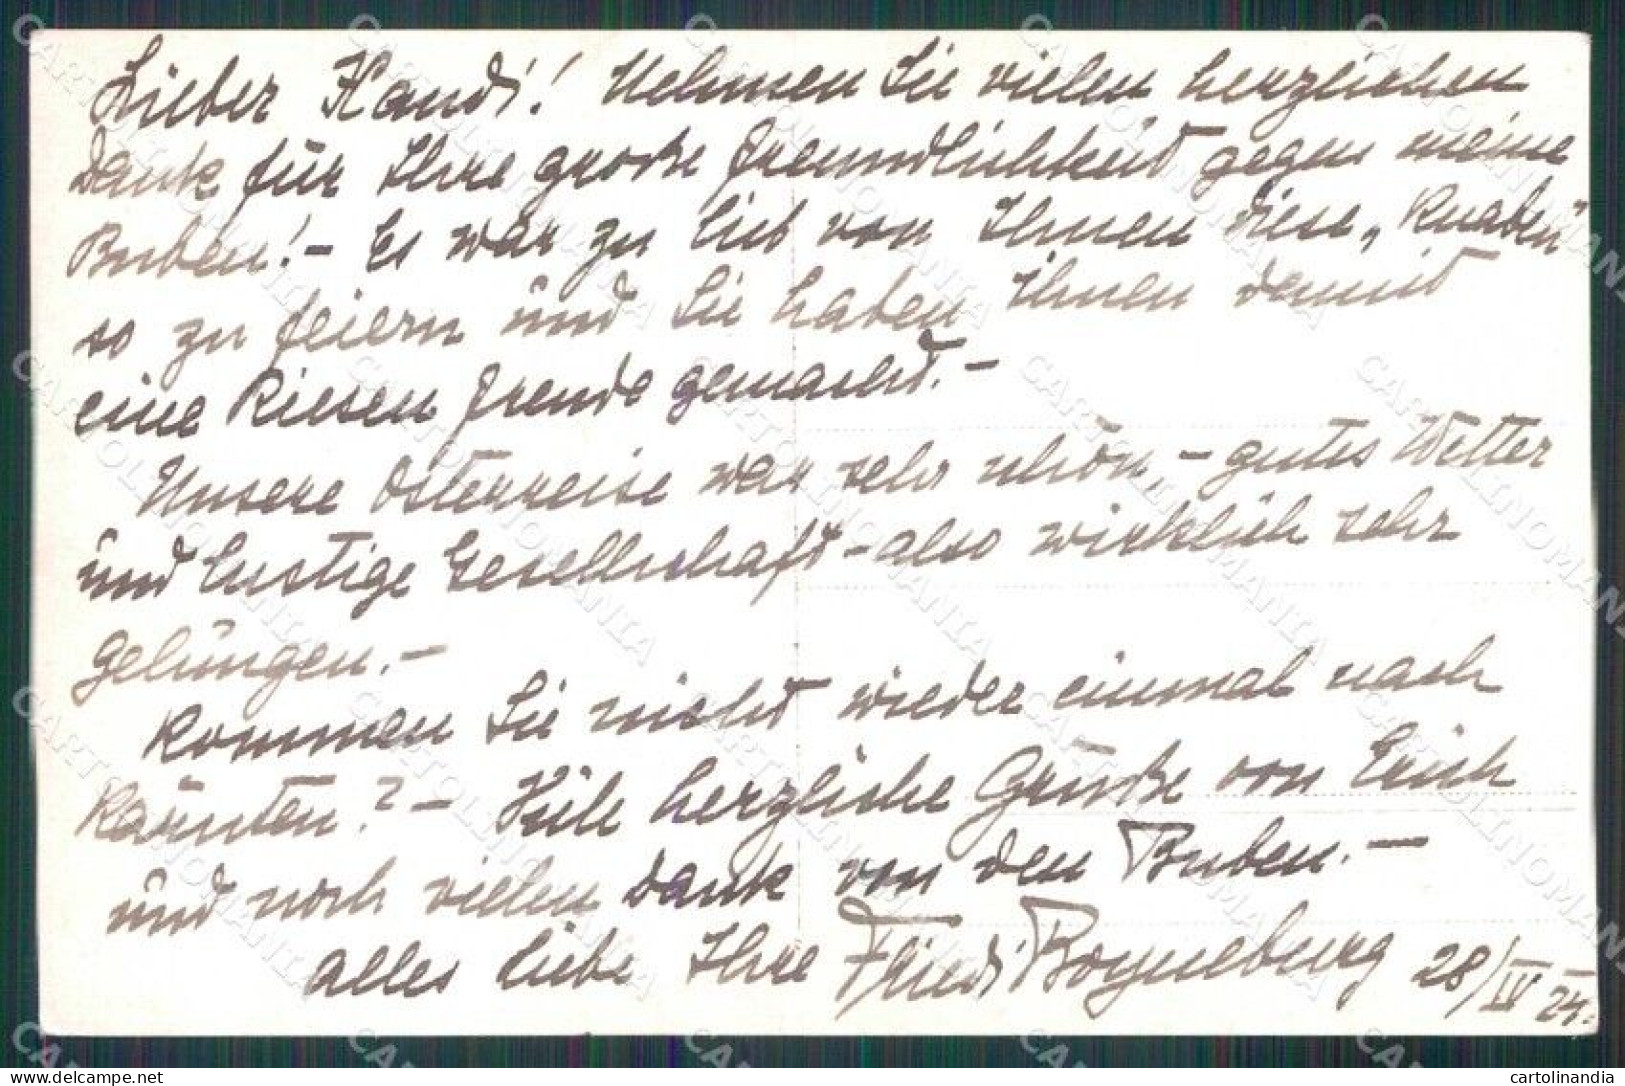 Lieber Kandi! Nehmen Sie vielen herzlichen
Dank für Ihre große Freundlichkeit gegen meine
Buben! - Es war zu lieb von Ihnen diese „Knaben"
so zu feiern und Sie haben Ihnen damit
eine Riesen freude gemacht. -
Unsere Osterreise war sehr schön, - gutes Wetter
und lustige Gesellschaft - also wirklich sehr
gelungen. -
Kommen Sie nicht wieder einmal nach
Kärnten? - Viele herzliche Grüße von Erich
und noch vielen Dank von den Buben. -
alles Liebe Ihre Friedi Boyneburg 28/IV 24.
CARTOLINOMANIA
cartolinandia